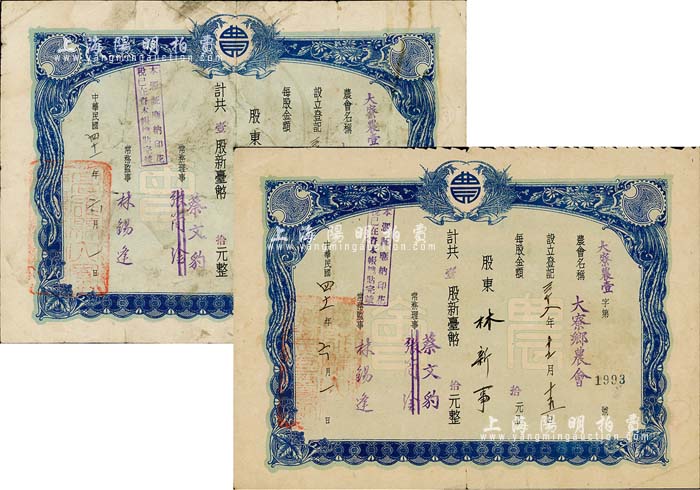 上海陽明拍賣
www.yangmingauction.com
農
大寮農壹
農會名稱
設立登記
每股金額
股東
計共 壹 股新臺幣 拾 元整
常務理事 蔡文豹
常務監事 林錫逢
中華民國 四十一 年 六 月 一 日
本憑証應納印花
稅已在資本帳簿貼完訖
農
大寮農壹 字第 1993 號
農會名稱 大寮鄉農會
設立登記 三十八 年 十二 月 十五 日
每股金額 拾 元
股東 林新事
計共 壹 股新臺幣 拾 元整
常務理事 蔡文豹
常務監事 林錫逢
中華民國 四十一 年 六 月 一 日
農會
上海陽明拍賣
www.yangmingauction.com